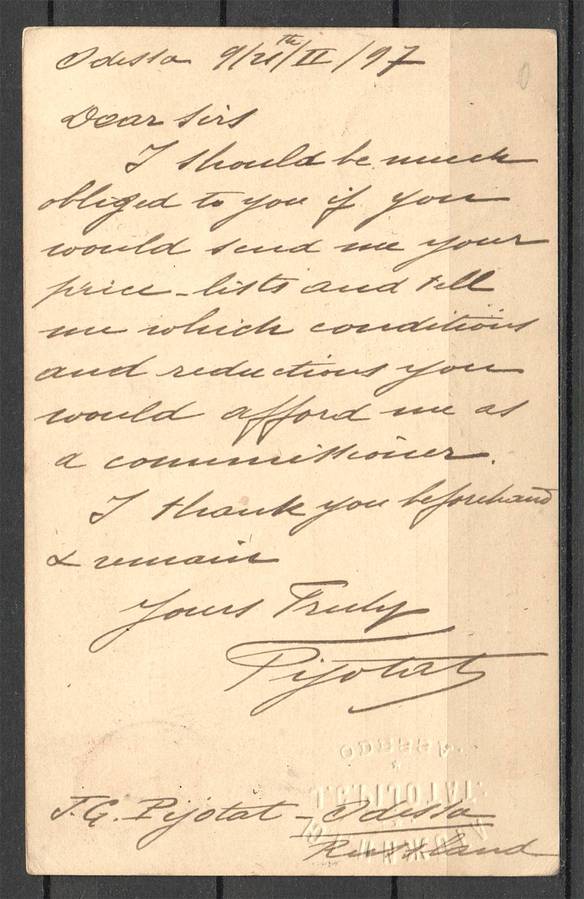 Odessa 9/21th/II/97
Dear Sirs
I should be much
obliged to you if you
would send me your
price-lists and tell
me which conditions
and reductions you
would afford me as
a commissioner.
I thank you beforehand
& remain
Yours Truly
Pijotat
ODESSA
J.G. PIJOTAT.
J.G. Pijotat - Odessa
Russland